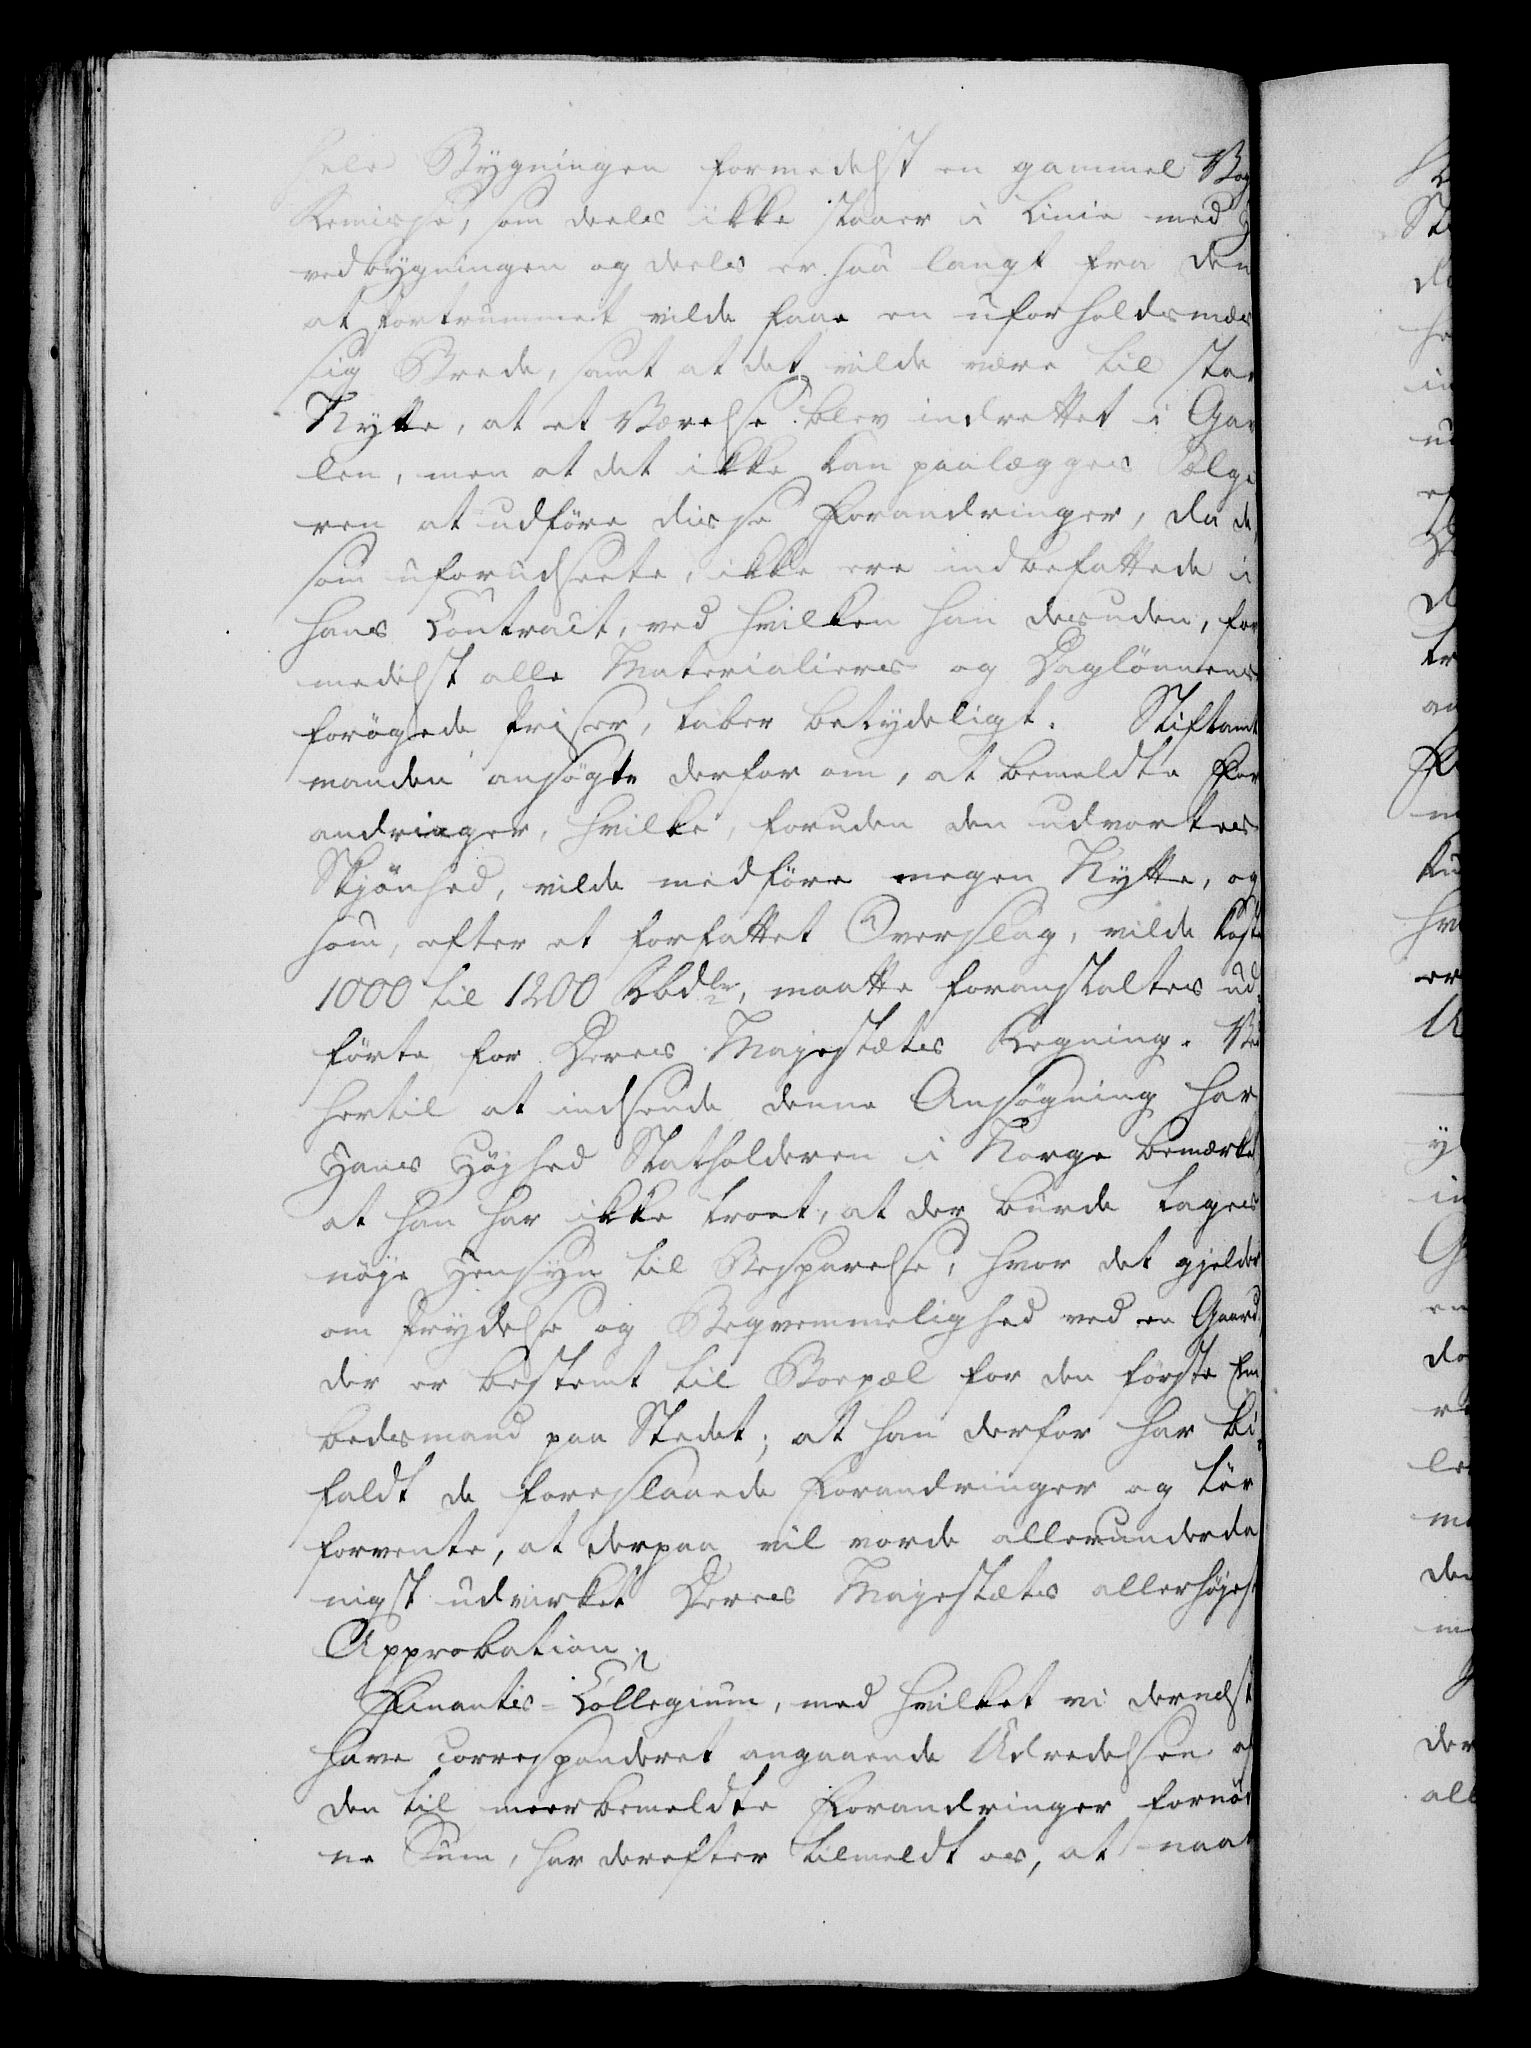 hele Bygningen formedelst en gammel Vog
Remisse, som deels ikke staaer i Linie med H
vedbygningen og deels er saa langt fra den
at Portrummet vilde faae en uforholdsmæs
sig Brede, samt at det vilde være til stor
Nytte, at et Værelse blev indrettet i Gav
len, men at det ikke kan paalægges Sælge
ren at udføre disse Forandringer, da de
som uforudseete, ikke ere indbefattede i
hans Contract, ved hvilken han desuden, for
medelst alle Materialiers og Daglønnens
forøgede Priser, taber betydeligt. Stiftamt
manden ansøgte derfor om, at bemeldte For
andringer, hvilke, foruden den udvortes
Skjønhed, vilde medføre megen Nytte, og
som, efter et forfattet Overslag, vilde koste
1000 til 1200 Rbdlr, maatte foranstaltes ud
førte for Deres Majestæts Regning. Ved
hertil at indsende denne Ansøgning har
Hans Højhed Statholderen i Norge bemærket
at han har ikke troet, at der burde tages
nøje Hensyn til Besparelse, hvor det gjelder
om Prydelse og Beqvemmelighed ved en Gaard
der er bestemt til Boepæl for den første Em
bedsmand paa Stedet; at han derfor har bi
faldt de foreslaaede Forandringer og tør
forvente, at derpaa vil vorde allerunderda
nigst udvirket Deres Majestæts allerhøjest
Approbation.
Finants-Collegium, med hvilket vi dernæst
have correspanderet angaaende Udredelsen af
den til meerbemeldte Forandringer fornød
ne Sum, har derefter tilmeldt os, at naar